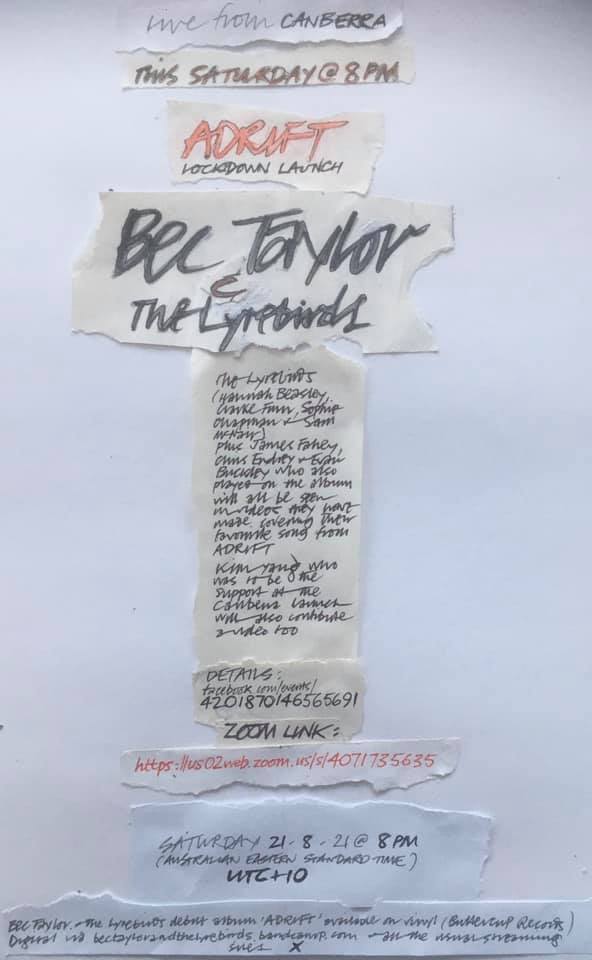 Live from CANBERRA
THIS SATURDAY @ 8PM
ADRIFT
LOCKDOWN LAUNCH
Bec Taylor
&
The Lyrebirds
The Lyrebirds
(Hannah Beasley,
Clarke Finn, Sophie
Chapman & Sam
McNair)
plus James Fahey,
Chris Endrey & Evan
Buckley who also
played on the album
will all be seen
in videos they have
made covering their
favourite song from
ADRIFT
Kim Yang who
was to be the
support at the
Canberra launch
will also contribute
a video too
DETAILS:
facebook.com/events/
4201870146565691
ZOOM LINK:
https://us02web.zoom.us/s/4071735635
SATURDAY 21-8-21 @ 8PM
(AUSTRALIAN EASTERN STANDARD TIME)
UTC+10
Bec Taylor & the Lyrebirds debut album 'ADRIFT' available on vinyl (Buttercup Records)
Digital via bectaylorandthelyrebirds.bandcamp.com & all the usual streaming
sites X